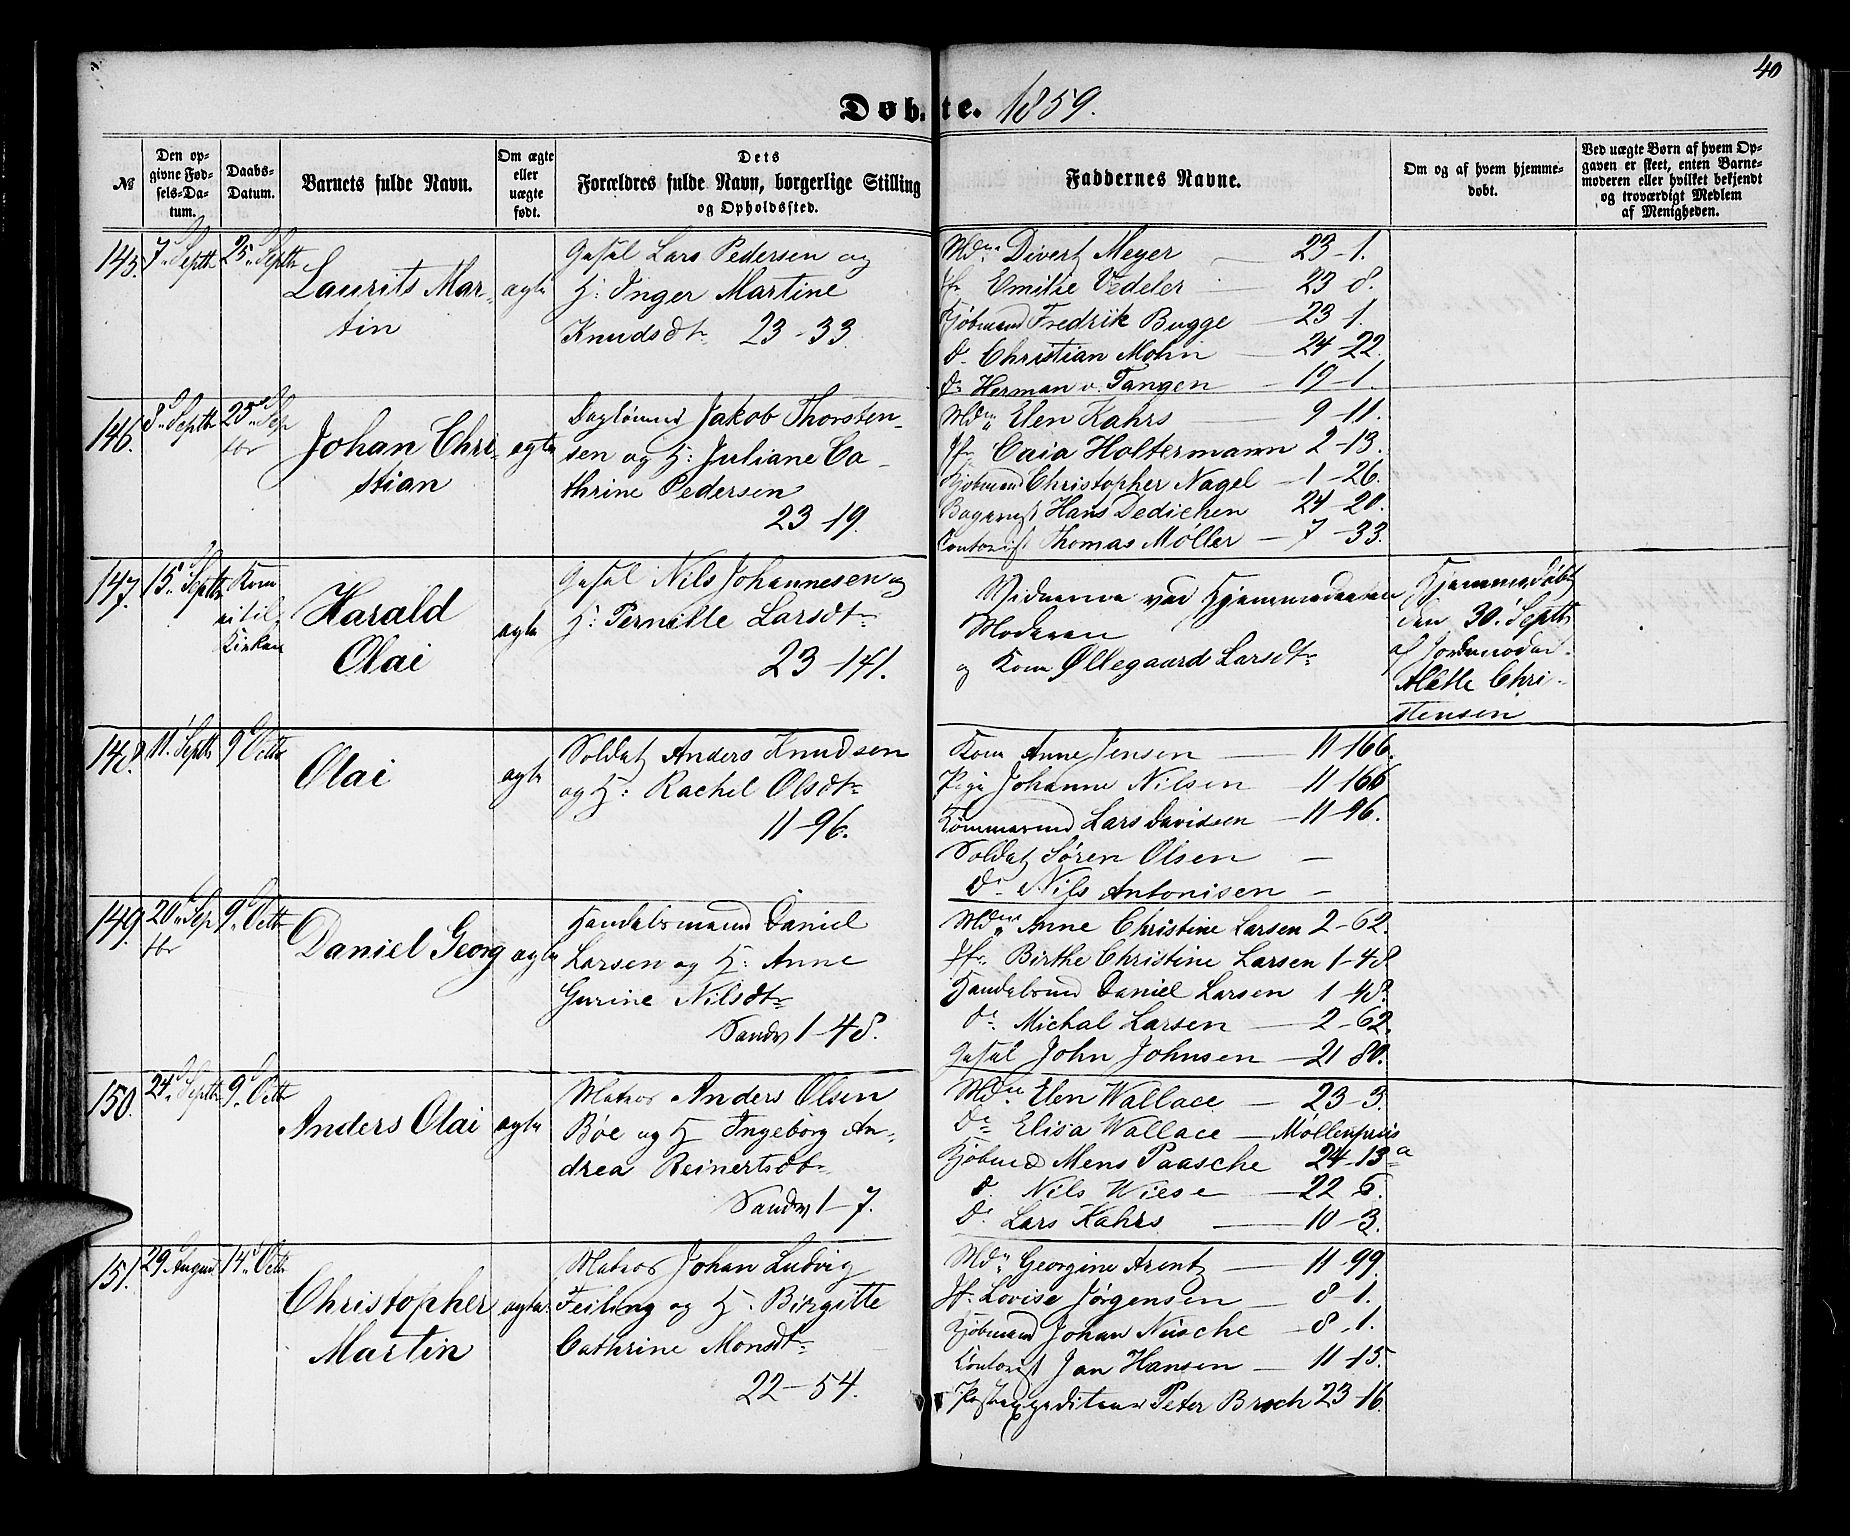 40
Døbte. 1859.
№
Den opgivne Fødsels-Datum.
Daabs-Datum.
Barnets fulde Navn.
Om ægte eller uægte født.
Dets Forældres fulde Navn, borgerlige Stilling og Opholdssted.
Faddernes Navne.
Om og af hvem hjemmedøbt.
Ved uægte Børn af hvem Opgaven er skeet, enten Barnemoderen eller hvilket bekjendt og troværdigt Medlem af Menigheden.
145. 7d Septb 25d Septb
Laurits Martin
ægte
Gasel Lars Pedersen og
H: Inger Martine
Knudsdtr 23-33.
Mdm Divert Meyer 23-1.
Jfr Emilie Vedeler 23-8.
Kjøbmand Fredrik Bugge 23-1.
do Christian Mohn 24-22.
do Herman v. Tangen 19-1.
146. 8d Septb 25d Septbr
Johan Christian
ægte
Daglønner Jakob Thorsten-
sen og H: Juliane Ca-
thrine Pedersen
23-19.
Mdm Elen Kahrs 9-11.
Jfr Caia Holtermann 2-13.
Kjøbmand Christopher Nagel 1-26.
Bagermst Hans Dedichen 24-20.
Contorist Thomas Møller 7-33.
147. 15d Septb Kom ei til Kirken
Harald
Olai
ægte
Gasel Nils Johannesen og
H: Pernille Larsdtr
23-141.
Vidnerne ved Hjemmedaaben
Moderen
og Kone Øllegaard Larsdtr
Hjemmedøbt
den 30 Septb
af Jordemoder
Alette Chri-
stensen
148. 11 Septb 9d Octb
Olai
ægte
Soldat Anders Knudsen
og H: Rachel Olsdtr
11-96.
Kone Anne Jensen 11-166.
Pige Johanne Nilsen 11-166
Tømmermd Lars Davidsen 11-96.
Soldat Søren Olsen –
do Nils Antonisen –
149. 20d Septbr 9d Octb
Daniel Georg
ægte
Handelsmand Daniel
Larsen og H: Anne
Gurine Nilsdtr
Sandv 1-48.
Mdm Anne Christine Larsen 2-62.
Jfr Birthe Christine Larsen 1-48
Handelsmd Daniel Larsen 1-48.
do Michal Larsen 2-62.
Gasel John Johnsen 21-80.
150. 24d Septb 9d Octb
Anders Olai
ægte
Matros Anders Olsen
Bøe og H Ingeborg An-
drea Reinertsdtr
Sandv 1-7.
Mdm Elen Wallace 23-3.
Do Elisa Wallace Møllenpriis
Kjøbmd Mens Paasche 24-13a
do Nils Wiese 22-6.
do Lars Kahrs 10-3.
151. 29 August 14d Octb
Christopher
Martin
ægte
Matros Johan Ludvig
Feiling og H: Birgitte
Cathrine Monsdtr
22-54.
Mdm Georgine Arentz 11-99.
Jfr Lovise Jørgensen 8-1.
Kjøbmand Johan Neische 8-1.
Contorist Jan Hansen 11-15.
Postexpediteur Peter Broch 23-16.